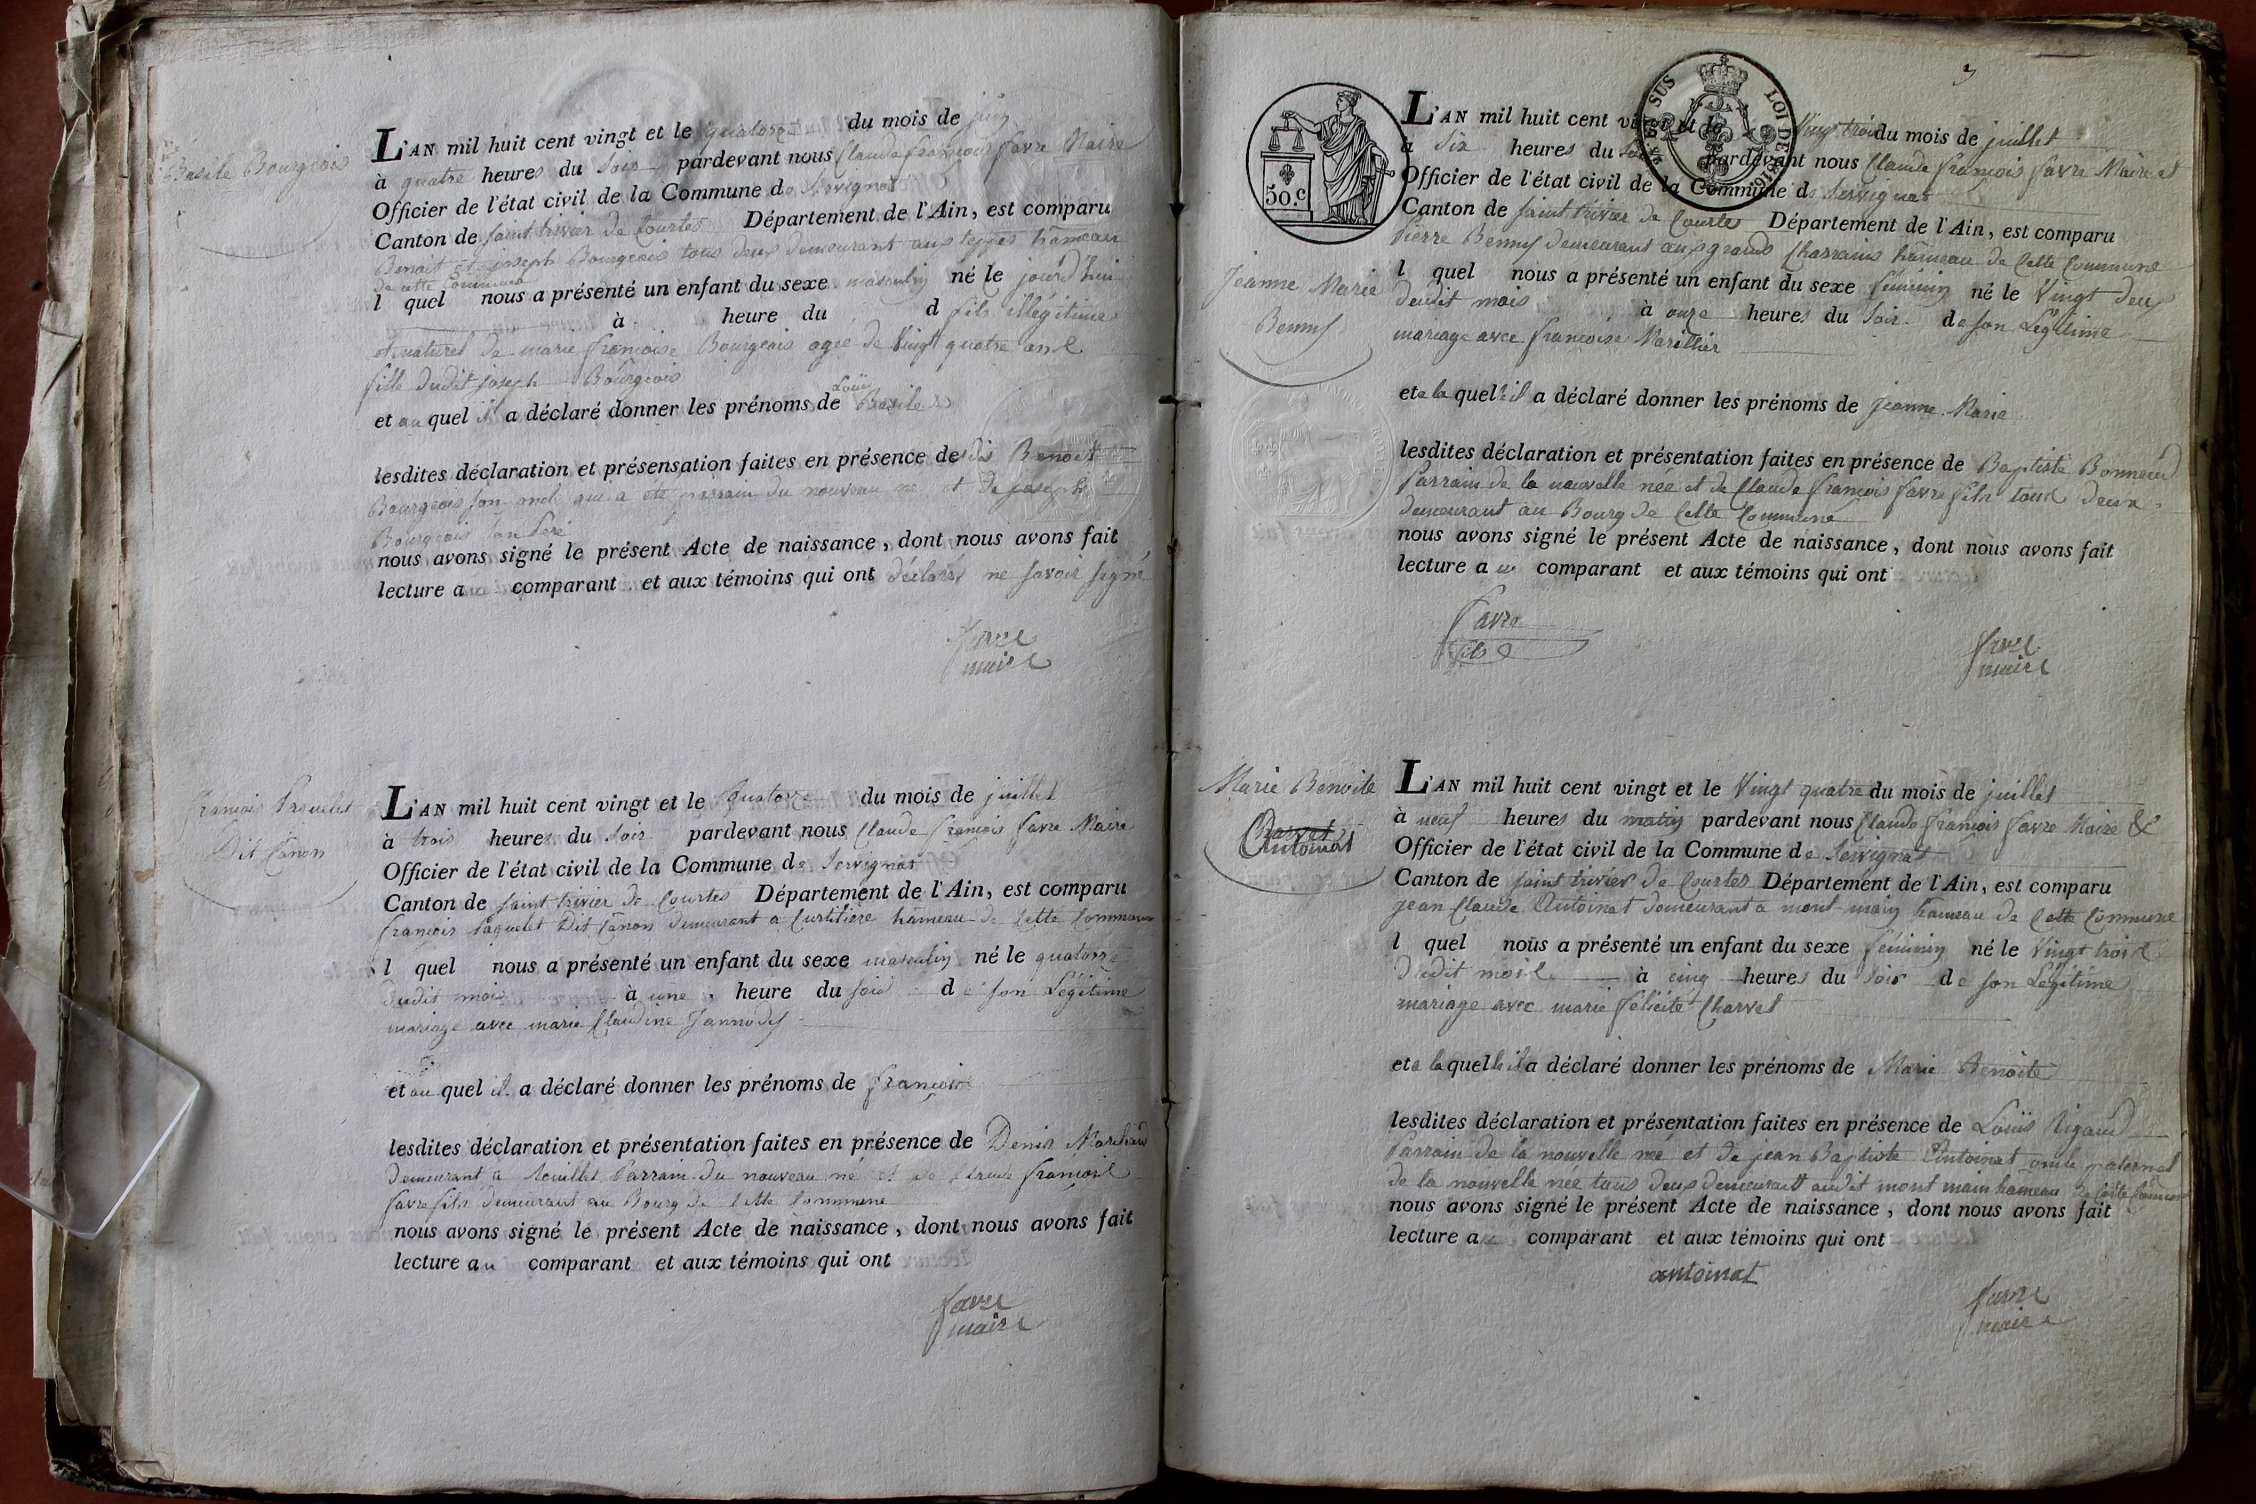 Basile Bourgeois
L'AN mil huit cent vingt et le quatorze du mois de juin
à quatre heures du soir pardevant nous Claude françois favre Maire
Officier de l'état civil de la Commune de Servignat
Canton de saint trivier de Courtes Département de l'Ain, est comparu
Benoit et joseph Bourgeois tous deux demeurant aux teppes hameau
de cette Commune
l quel nous a présenté un enfant du sexe masculin né le jourd'hui
à heure du d fils illégitime
et naturel de marie françoise Bourgeois agée de Vingt quatre ans
fille dudit joseph Bourgeois
Louis
et au quel il a déclaré donner les prénoms de Basile
lesdites déclaration et présensation faites en présence de Benoit
Bourgeois son oncle qui a été parrain du nouveau né et de joseph
Bourgeois
nous avons signé le présent Acte de naissance, dont nous avons fait
lecture a comparant et aux témoins qui ont déclarés ne savoir signé
favre
maire
françois Paquelet
Dit Canon
L'AN mil huit cent vingt et le quatorze du mois de juillet
à trois heures du soir pardevant nous Claude françois favre Maire
Officier de l'état civil de la Commune de Servignat
Canton de saint trivier de Courtes Département de l'Ain, est comparu
françois Paquelet Dit Canon demeurant a Curtitière hameau de cette Commune
l quel nous a présenté un enfant du sexe masculin né le quatorze
dudit mois à une heure du soir de son Légitime
mariage avec marie Claudine
et au quel il a déclaré donner les prénoms de françois
lesdites déclaration et présentation faites en présence de Denis
demeurant a Parrain du nouveau né et de Claude françois
favre fils demeurant au Bourg de cette Commune
nous avons signé le présent Acte de naissance, dont nous avons fait
lecture au comparant et aux témoins qui ont
favre
maire
3
SUS LOI DE 1816
50.c
Jeanne Marie
L'AN mil huit cent vingt et le Vingt trois du mois de juillet
à Six heures du soir pardevant nous Claude françois favre Maire et
Officier de l'état civil de la Commune de Servignat
Canton de saint trivier de Courtes Département de l'Ain, est comparu
Pierre demeurant aux grands Charrains hameau de Cette Commune
l quel nous a présenté un enfant du sexe féminin né le Vingt deux
dudit mois à onze heures du soir de son Légitime
mariage avec françoise Marillier
et a la quelle il a déclaré donner les prénoms de jeanne Marie
lesdites déclaration et présentation faites en présence de Baptiste
Parrain de la nouvelle née et de Claude françois favre fils tous deux
demeurant au Bourg de Cette Commune
nous avons signé le présent Acte de naissance, dont nous avons fait
lecture au comparant et aux témoins qui ont
favre
fils
favre
maire
Marie Benoite
Charvet
Antoinat
L'AN mil huit cent vingt et le Vingt quatre du mois de juillet
à neuf heures du matin pardevant nous Claude françois favre Maire &
Officier de l'état civil de la Commune de Servignat
Canton de saint trivier de Courtes Département de l'Ain, est comparu
jean Claude Antoinat demeurant a mont main hameau de Cette Commune
l quel nous a présenté un enfant du sexe féminin né le Vingt trois
dudit mois à cinq heures du soir de son Légitime
mariage avec marie félicité Charvet
et a la quelle il a déclaré donner les prénoms de Marie Benoite
lesdites déclaration et présentation faites en présence de Louis Rigaud
Parrain de la nouvelle née et de jean Baptiste Antoinat oncle paternel
de la nouvelle née tous deux demeurant audit mont main hameau de Cette Commune
nous avons signé le présent Acte de naissance, dont nous avons fait
lecture a comparant et aux témoins qui ont
antoinat
favre
maire